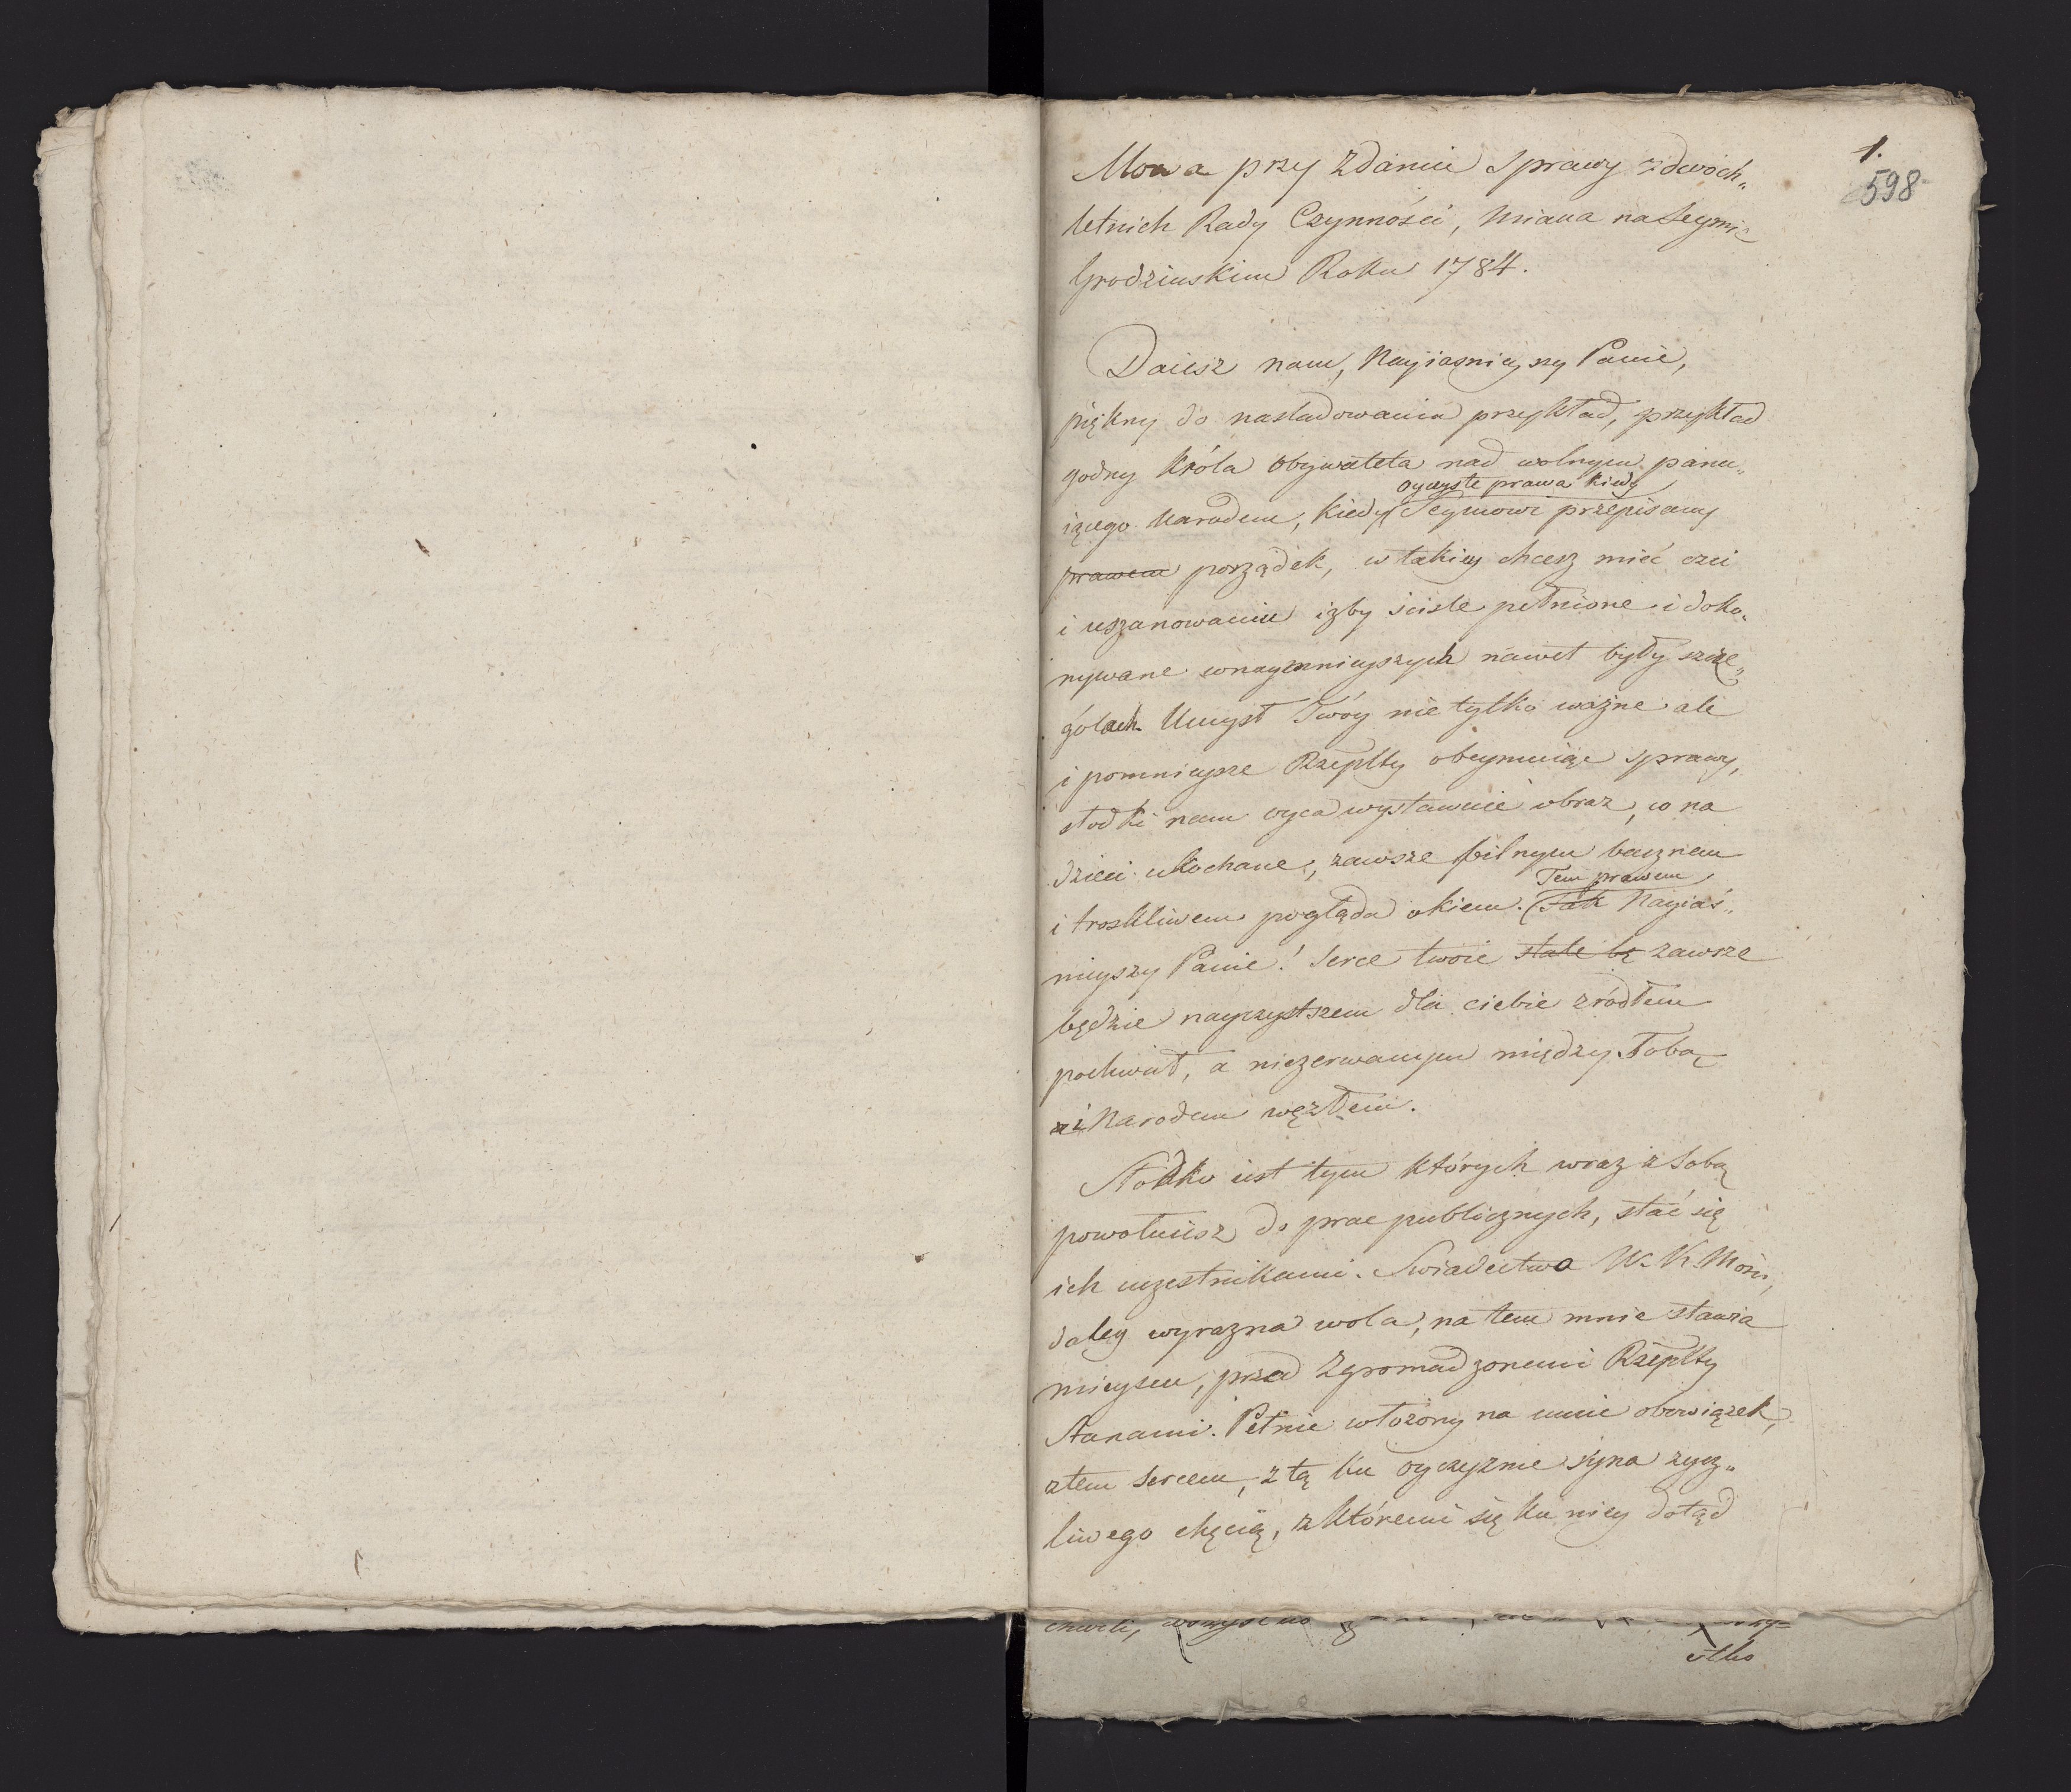 1.
598
Mowa przy zdaniu sprawy z dwóch„
letnich Rady Czynności, miana na Seymie
Grodzinskim Roku 1784.
Daiesz nam, Nayiasnieyszy Panie,
piękny do nasladowania przykład, przykład
godny Króla Obywatela nad wolnym panu„
oyczyste prawa kiedy
iącego Narodem, kiedy Seymowi przepisany
prawem porządek, w takiey chcesz mieć czci
i uszanowaniu izby sciśle pełnione i doko„
nywane w naymnieyszych nawet były szcze„
gółach. Umysł Twóy nie tylko ważne ale
i pomnieysze Rzeplty obeymuiąc sprawy,
słodki nam oyca wystawuie obraz, co na
dzieci ukochane, zawsze pilnym bacznem
Tem prawem
i troskliwem pogląda okiem. Tak Nayiaś„
nieyszy Panie! Serce twoie stale bę zawsze
będzie nayczystszem dla ciebie zródłem
pochwał, a niezerwanym między Tobą
a i Narodem węzłem.
Słodko iest tym których wraz z Sobą
powołuiesz do prac publicznych, stać się
ich uczestnikami. Swiadectwo W. K. Mości,
daley wyrazna wola, na tem mnie stawia
mieyscu, przed Zgromadzonemi Rzeplty
Stanami. Pełnie włożony na mnie obowiązek,
z tem sercem, z tą ku oyczyznie syna zycz„
liwego chęcią, z któremi się ku niey dotąd
chwili,
stko